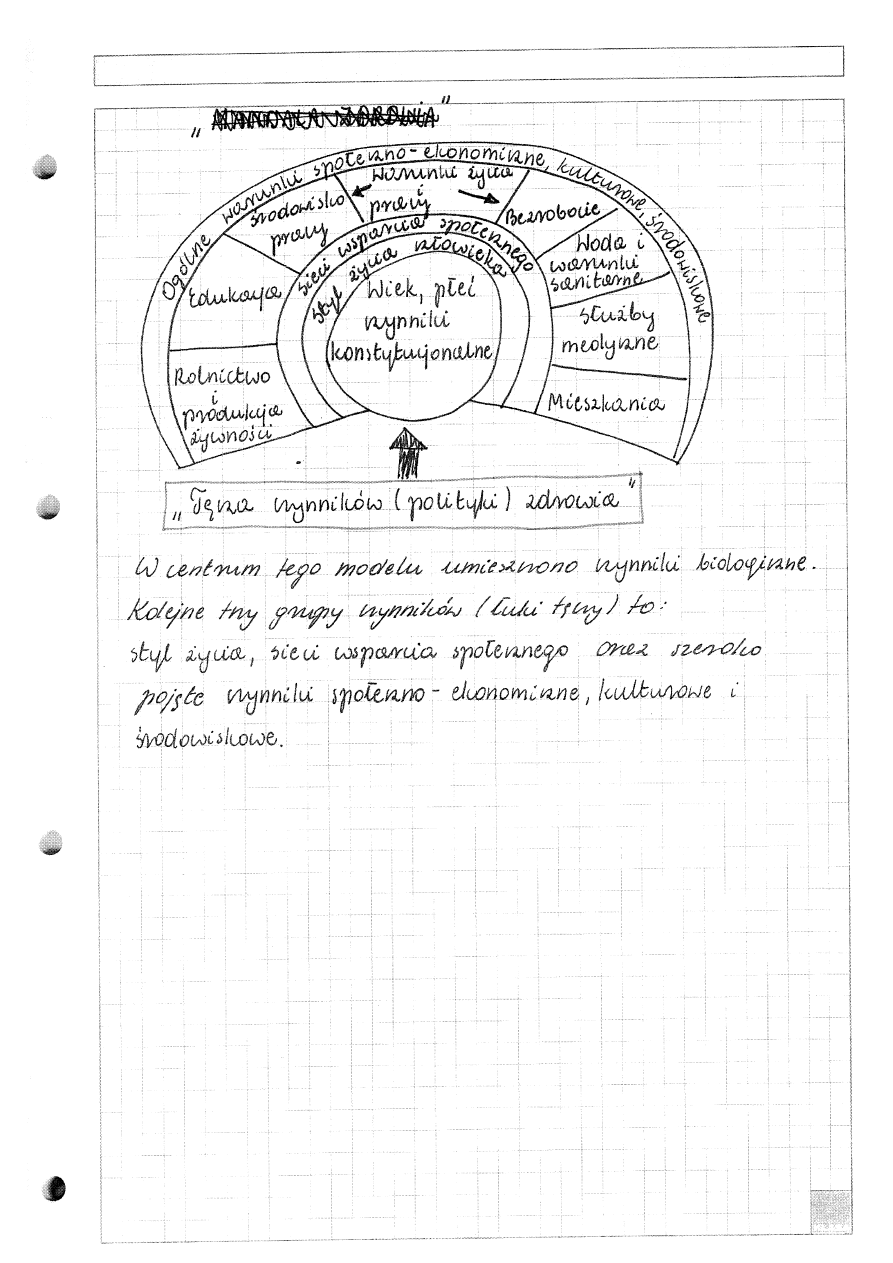 „ MANDALA ZDROWIA "
Ogólne warunki społeczno-ekonomiczne, kulturowe, środowiskowe
Warunki życia
i
pracy
Środowisko
pracy
Bezrobocie
sieci wsparcia społecznego
Woda i
warunki
sanitarne
styl życia człowieka
Edukacja
Wiek, płeć
czynniki
konstytucjonalne
służby
medyczne
Rolnictwo
i
produkcja
żywności
Mieszkania
„Tęcza czynników (polityki) zdrowia"
W centrum tego modelu umieszczono czynniki biologiczne.
Kolejne trzy grupy czynników (łuki tęczy) to:
styl życia, sieci wsparcia społecznego oraz szeroko
pojęte czynniki społeczno-ekonomiczne, kulturowe i
środowiskowe.